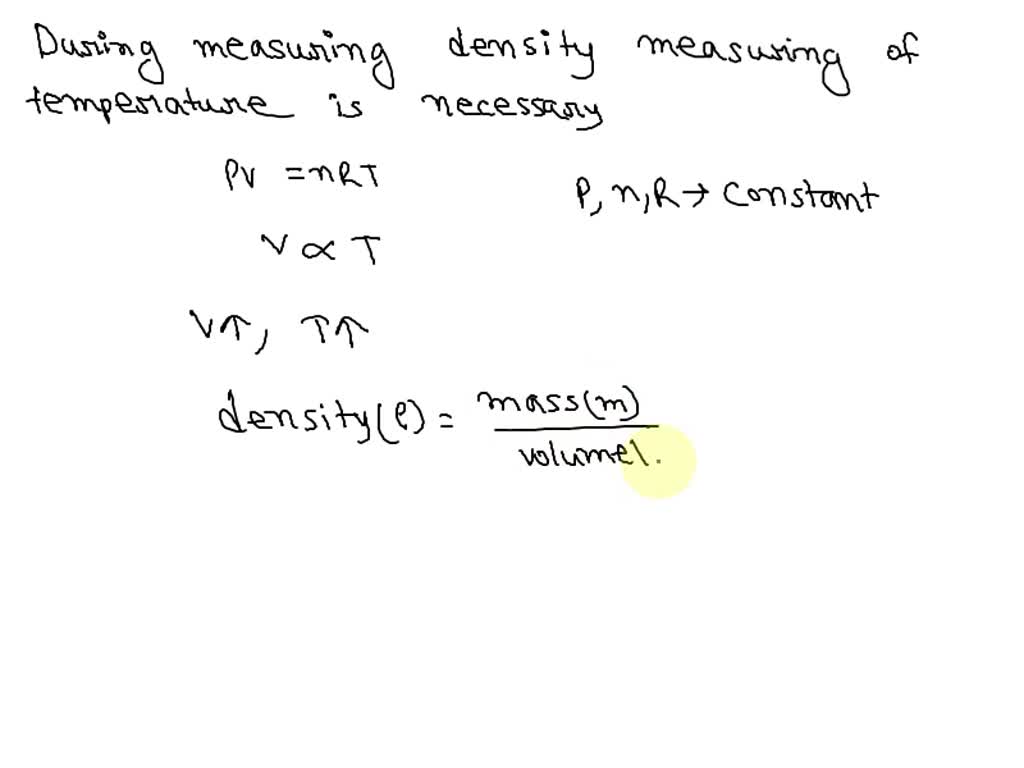 During measuring density measuring of
temperature is necessary
PV = nRT
P, n, R → constant
V ∝ T
V↑, T↑
density(ρ) = mass(m)
volume(.